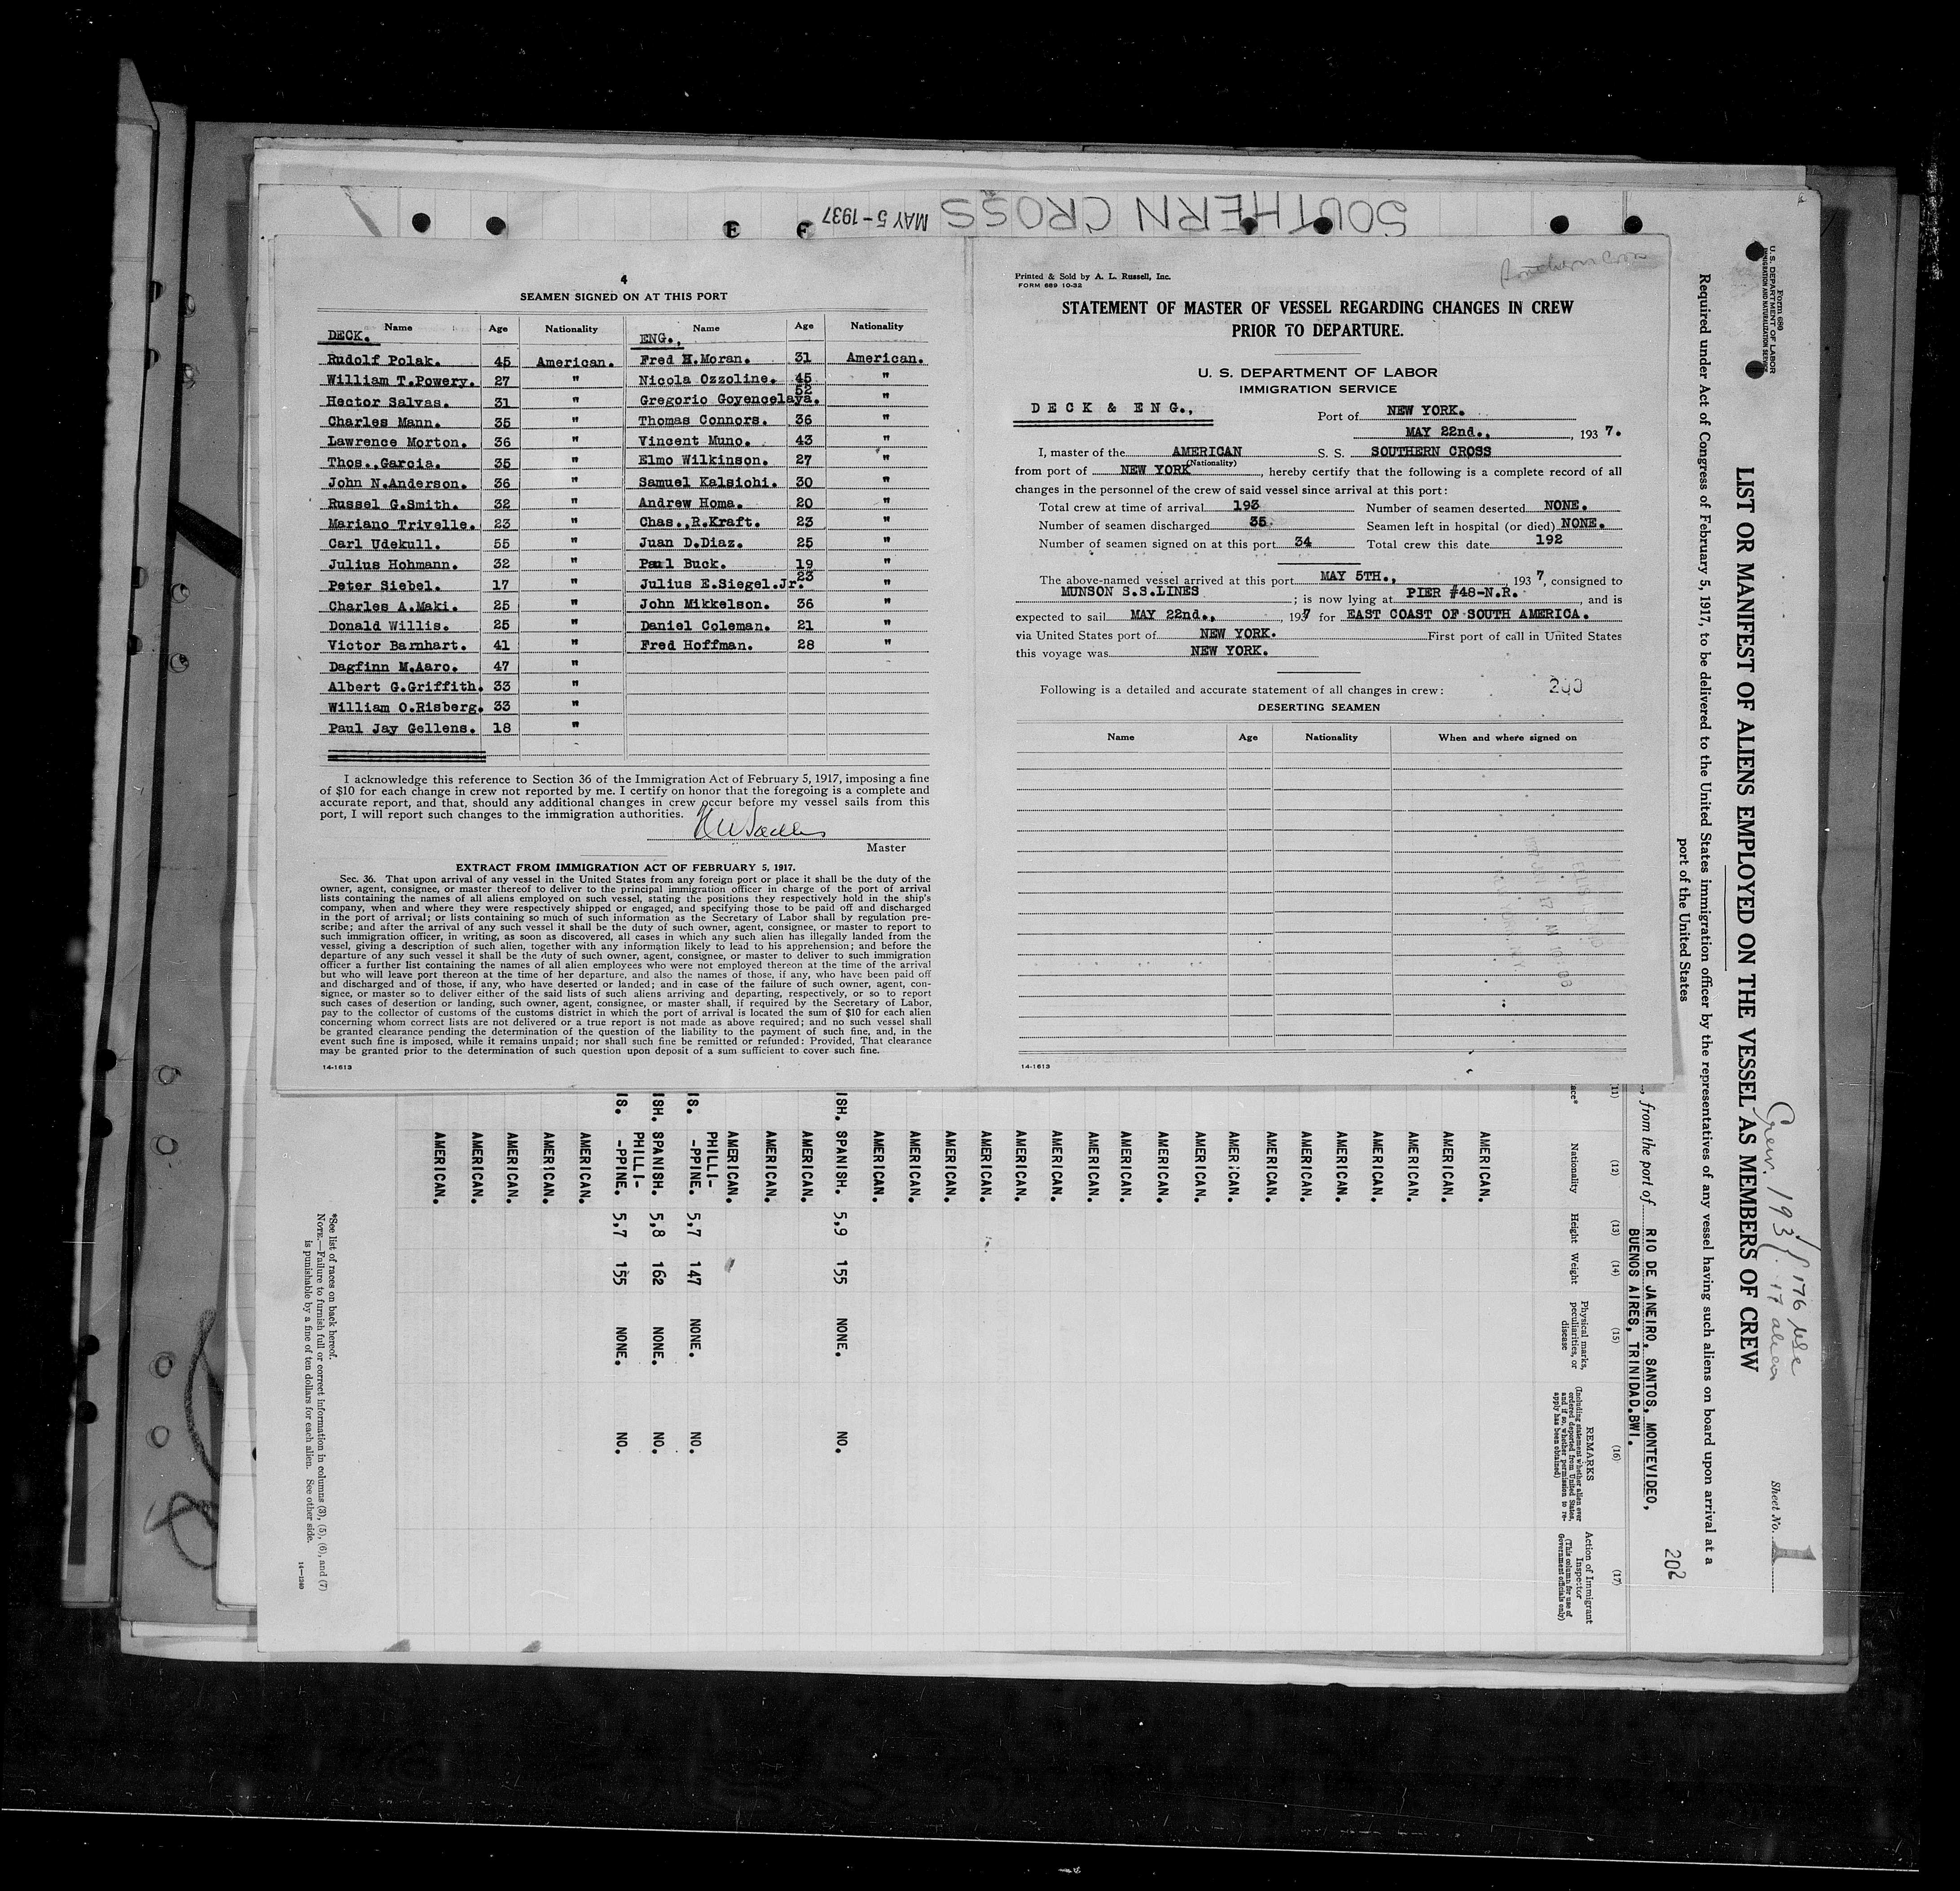 SOUTHERN CROSS
MAY 5-1937
E F
4
SEAMEN SIGNED ON AT THIS PORT
Name Age Nationality Name Age Nationality
DECK. ENG.,
Rudolf Polak. 45 American. Fred H.Moran. 31 American.
William T.Powery. 27 " Nicola Ozzoline. 45 "
Hector Salvas. 31 " Gregorio Goyencelaya. 52 "
Charles Mann. 35 " Thomas Connors. 36 "
Lawrence Morton. 36 " Vincent Muno. 43 "
Thos.,Garcia. 35 " Elmo Wilkinson. 27 "
John N.Anderson. 36 " Samuel Kalsichi. 30 "
Russel G.Smith. 32 " Andrew Homa. 20 "
Mariano Trivelle. 23 " Chas.,R.Kraft. 23 "
Carl Udekull. 55 " Juan D.Diaz. 25 "
Julius Hohmann. 32 " Paul Buck. 19 "
Peter Siebel. 17 " Julius E.Siegel.Jr. 23 "
Charles A.Maki. 25 " John Mikkelson. 36 "
Donald Willis. 25 " Daniel Coleman. 21 "
Victor Barnhart. 41 " Fred Hoffman. 28 "
Dagfinn M.Aaro. 47 "
Albert G.Griffith. 33 "
William O.Risberg. 33 "
Paul Jay Gellens. 18 "
I acknowledge this reference to Section 36 of the Immigration Act of February 5, 1917, imposing a fine
of $10 for each change in crew not reported by me. I certify on honor that the foregoing is a complete and
accurate report, and that, should any additional changes in crew occur before my vessel sails from this
port, I will report such changes to the immigration authorities.
Master
EXTRACT FROM IMMIGRATION ACT OF FEBRUARY 5, 1917.
Sec. 36. That upon arrival of any vessel in the United States from any foreign port or place it shall be the duty of the
owner, agent, consignee, or master thereof to deliver to the principal immigration officer in charge of the port of arrival
lists containing the names of all aliens employed on such vessel, stating the positions they respectively hold in the ship's
company, when and where they were respectively shipped or engaged, and specifying those to be paid off and discharged
in the port of arrival; or lists containing so much of such information as the Secretary of Labor shall by regulation pre-
scribe; and after the arrival of any such vessel it shall be the duty of such owner, agent, consignee, or master to report to
such immigration officer, in writing, as soon as discovered, all cases in which any such alien has illegally landed from the
vessel, giving a description of such alien, together with any information likely to lead to his apprehension; and before the
departure of any such vessel it shall be the duty of such owner, agent, consignee, or master to deliver to such immigration
officer a further list containing the names of all alien employees who were not employed thereon at the time of the arrival
but who will leave port thereon at the time of her departure, and also the names of those, if any, who have been paid off
and discharged and of those, if any, who have deserted or landed; and in case of the failure of such owner, agent, con-
signee, or master so to deliver either of the said lists of such aliens arriving and departing, respectively, or so to report
such cases of desertion or landing, such owner, agent, consignee, or master shall, if required by the Secretary of Labor,
pay to the collector of customs of the customs district in which the port of arrival is located the sum of $10 for each alien
concerning whom correct lists are not delivered or a true report is not made as above required; and no such vessel shall
be granted clearance pending the determination of the question of the liability to the payment of such fine, and, in the
event such fine is imposed, while it remains unpaid; nor shall such fine be remitted or refunded: Provided, That clearance
may be granted prior to the determination of such question upon deposit of a sum sufficient to cover such fine.
14-1613
Printed & Sold by A. L. Russell, Inc.
FORM 689 10-32
STATEMENT OF MASTER OF VESSEL REGARDING CHANGES IN CREW
PRIOR TO DEPARTURE.
U. S. DEPARTMENT OF LABOR
IMMIGRATION SERVICE
DECK & ENG.,
Port of NEW YORK.
MAY 22nd., , 1937.
I, master of the AMERICAN S. S. SOUTHERN CROSS
(Nationality)
from port of NEW YORK , hereby certify that the following is a complete record of all
changes in the personnel of the crew of said vessel since arrival at this port:
Total crew at time of arrival 193 Number of seamen deserted NONE.
Number of seamen discharged 35. Seamen left in hospital (or died) NONE.
Number of seamen signed on at this port 34 Total crew this date 192
The above-named vessel arrived at this port MAY 5TH., , 1937, consigned to
MUNSON S.S.LINES ; is now lying at PIER #48-N.R. , and is
expected to sail MAY 22nd., , 1937 for EAST COAST OF SOUTH AMERICA.
via United States port of NEW YORK. First port of call in United States
this voyage was NEW YORK.
Following is a detailed and accurate statement of all changes in crew: 200
DESERTING SEAMEN
Name Age Nationality When and where signed on
14-1613
Form 680
U. S. DEPARTMENT OF LABOR
IMMIGRATION AND NATURALIZATION SERVICE
Crew. 193 176 USC
17 aliens
Sheet No. 1
LIST OR MANIFEST OF ALIENS EMPLOYED ON THE VESSEL AS MEMBERS OF CREW
Required under Act of Congress of February 5, 1917, to be delivered to the United States immigration officer by the representatives of any vessel having such aliens on board upon arrival at a
port of the United States
202
, from the port of RIO DE JANEIRO, SANTOS, MONTEVIDEO,
BUENOS AIRES, TRINIDAD.BWI.
(11) (12) (13) (14) (15) (16) (17)
Nationality Height Weight Physical marks, peculiarities, or disease
REMARKS
(Including statement whether alien ever ordered deported from United States, and if so, whether permission to re-apply has been obtained)
Action of Immigrant Inspector
(This column for use of Government officials only)
AMERICAN.
AMERICAN.
AMERICAN.
AMERICAN.
AMERICAN.
AMERICAN.
AMERICAN.
AMERICAN.
AMERICAN.
AMERICAN.
AMERICAN.
AMERICAN.
AMERICAN.
AMERICAN.
AMERICAN.
AMERICAN.
AMERICAN.
AMERICAN.
ISH. SPANISH. 5,9 155 NONE. NO.
AMERICAN.
AMERICAN.
AMERICAN.
PHILLI-
IS. -PPINE. 5,7 147 NONE. NO.
ISH. SPANISH. 5,8 162 NONE. NO.
PHILLI-
IS. -PPINE. 5,7 155 NONE. NO.
AMERICAN.
AMERICAN.
AMERICAN.
AMERICAN.
AMERICAN.
*See list of races on back hereof.
NOTE.—Failure to furnish full or correct information in columns (3), (5), (6), and (7)
is punishable by a fine of ten dollars for each alien. See other side.
14-1240